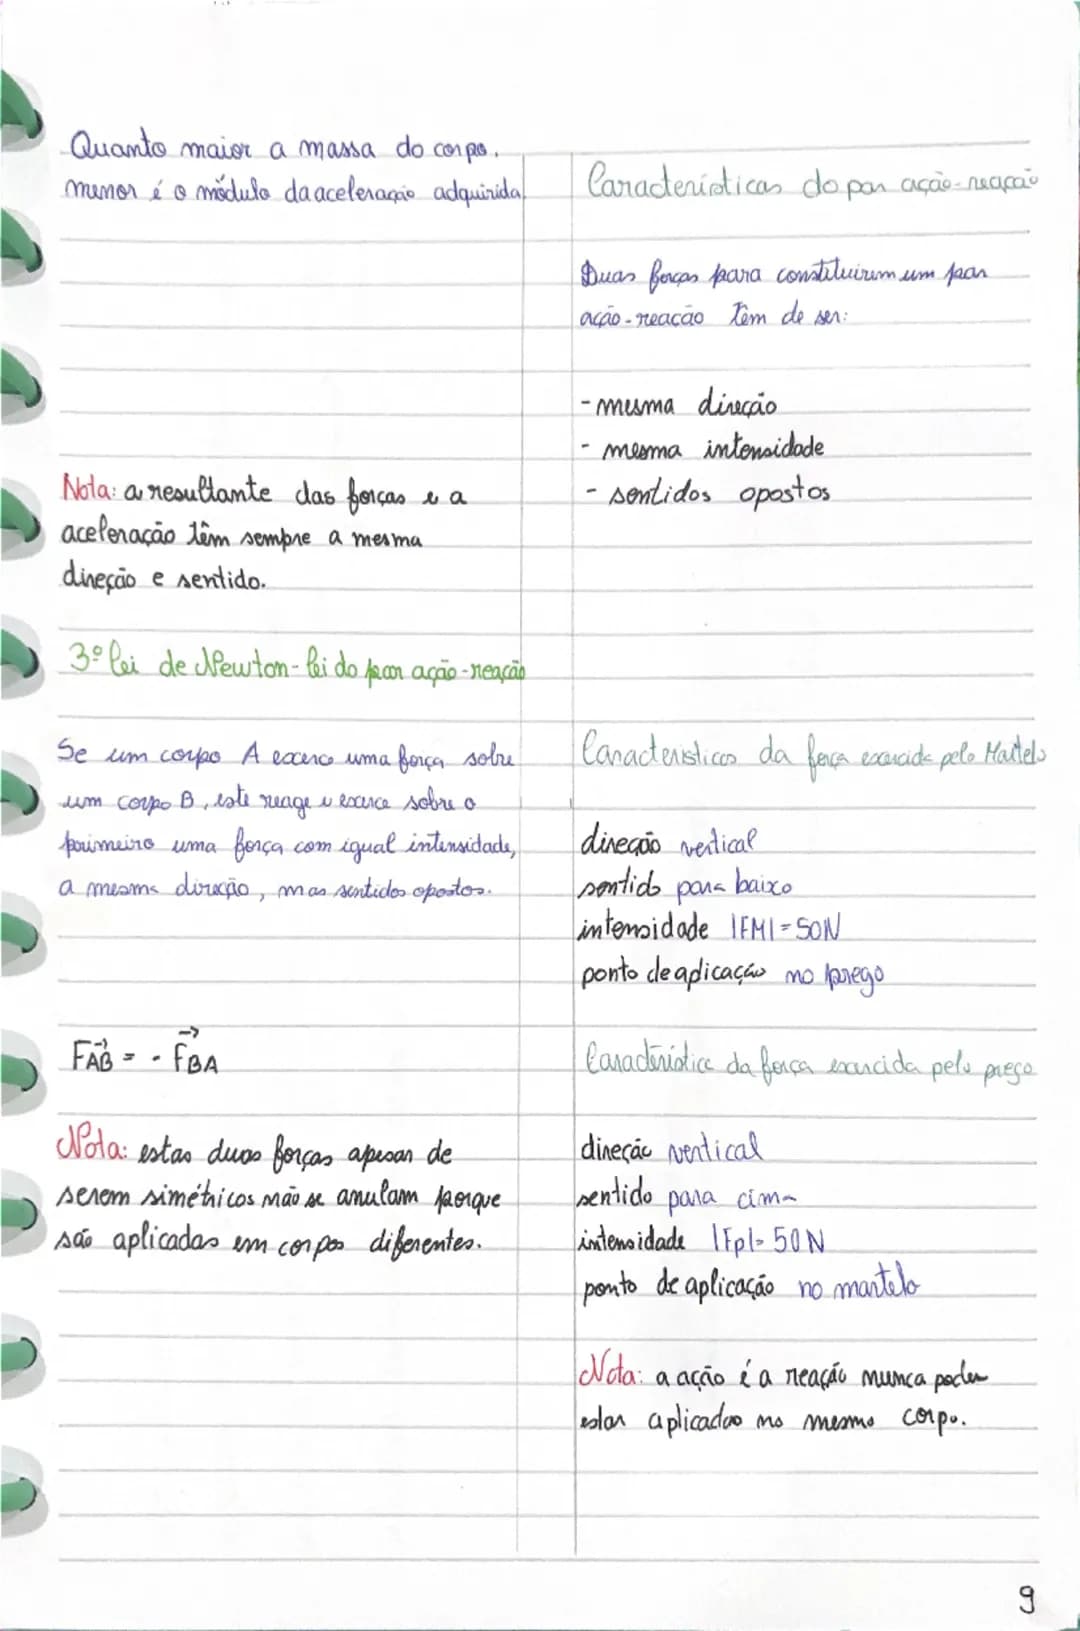 Quanto maior a massa do corpo,
menor é o módulo da aceleração adquirida.
Nota: a resultante das forças e a
aceleração têm sempre a mesma
direção e sentido.
3º lei de Newton - lei do par ação-reação
Se um corpo A exerce uma força sobre
um corpo B, este reage e exerce sobre o
primeiro uma força com igual intensidade,
a mesma direcção, mas sentidos opostos.
F⃗AB = - F⃗BA
Nota: estas duas forças apesar de
serem simétricos não se anulam porque
são aplicadas em corpos diferentes.
Características do par ação-reação
Duas forças para constituirem um par
ação-reação têm de ser:
- mesma direcção
- mesma intensidade
- sentidos opostos
Caracteristicas da força exercida pelo Martelo
direção vertical
sentido para baixo
intensidade |FM| = 50N
ponto de aplicação no prego
Caracteristica da força exercida pelo prego
direção vertical
sentido para cima
intensidade |Fp|= 50N
ponto de aplicação no martelo
Nota: a ação é a reação nunca podem
estar aplicadas no mesmo corpo.
9